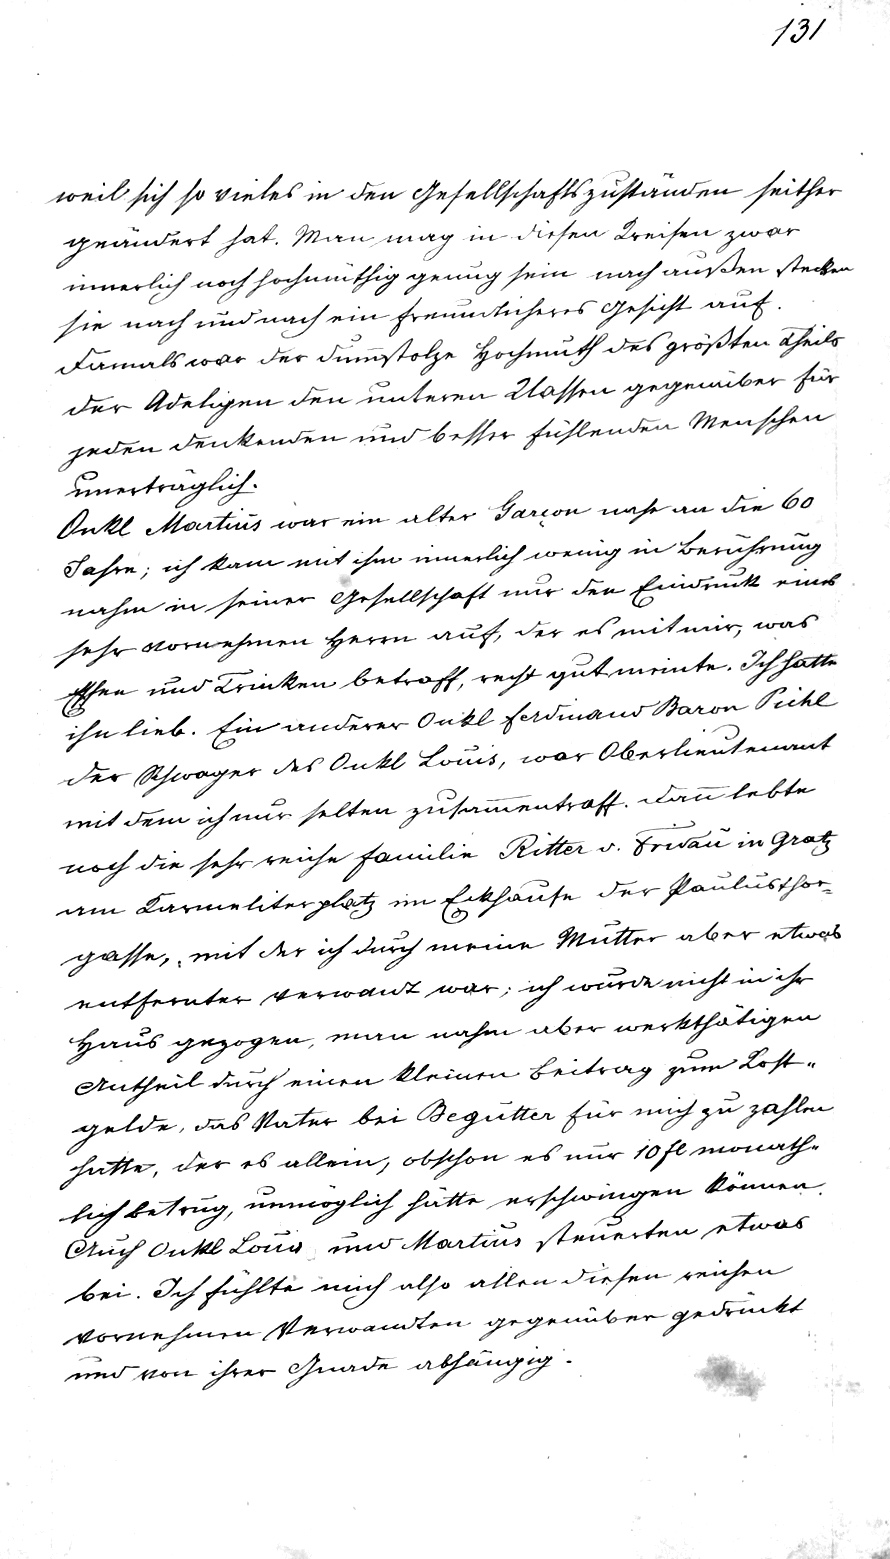 131
weil sich so vieles in den Gesellschaftszuständen seither
geändert hat. Man mag in diesen Kreisen zwar
innerlich noch hochmüthig genug sein nach außen stecken
sie nach und nach ein freundlicheres Gesicht auf.
Damals war der dum̅stolze Hochmuth des größten Theils
der Adeligen den unteren Klassen gegenüber für
jeden denkenden und besser fühlenden Menschen
unerträglich.
Onkl Martius war ein alter Garçon nahe an die 60
Jahre; ich kam mit ihm innerlich wenig in Berührung
nahm in seiner Gesellschaft nur den Eindruck eines
sehr vornehmen Herrn auf, der es mit mir, was
Essen und Trinken betraff, recht gut meinte. Ich hatte
ihn lieb. Ein anderer Onkl Ferdinand Baron Pichl
der Schwager des Onkl Louis, war Oberlieutenant
mit dem ich nur selten zusam̅entraff. Dan̅ lebte
noch die sehr reiche Familie Ritter v. Fridau in Gratz
am Karmeliterplatz im Eckhause der Paulusthor=
gasse, mit der ich durch meine Mutter aber etwas
entfernter verwandt war; ich wurde nicht in ihr
Haus gezogen, man nahm aber werkthätigen
Antheil durch einen kleinen Beitrag zum Kost=
gelde, das Vater bei Begutter für mich zu zahlen
hatte, der es allein, obschon es nur 10 fl monath=
lich betrug, unmöglich hätte erschwingen können.
Auch Onkl Louis und Martius steuerten etwas
bei. Ich fühlte mich also allen diesen reichen
vornehmen Verwandten gegenüber gedrückt
und von ihrer Gnade abhängig.